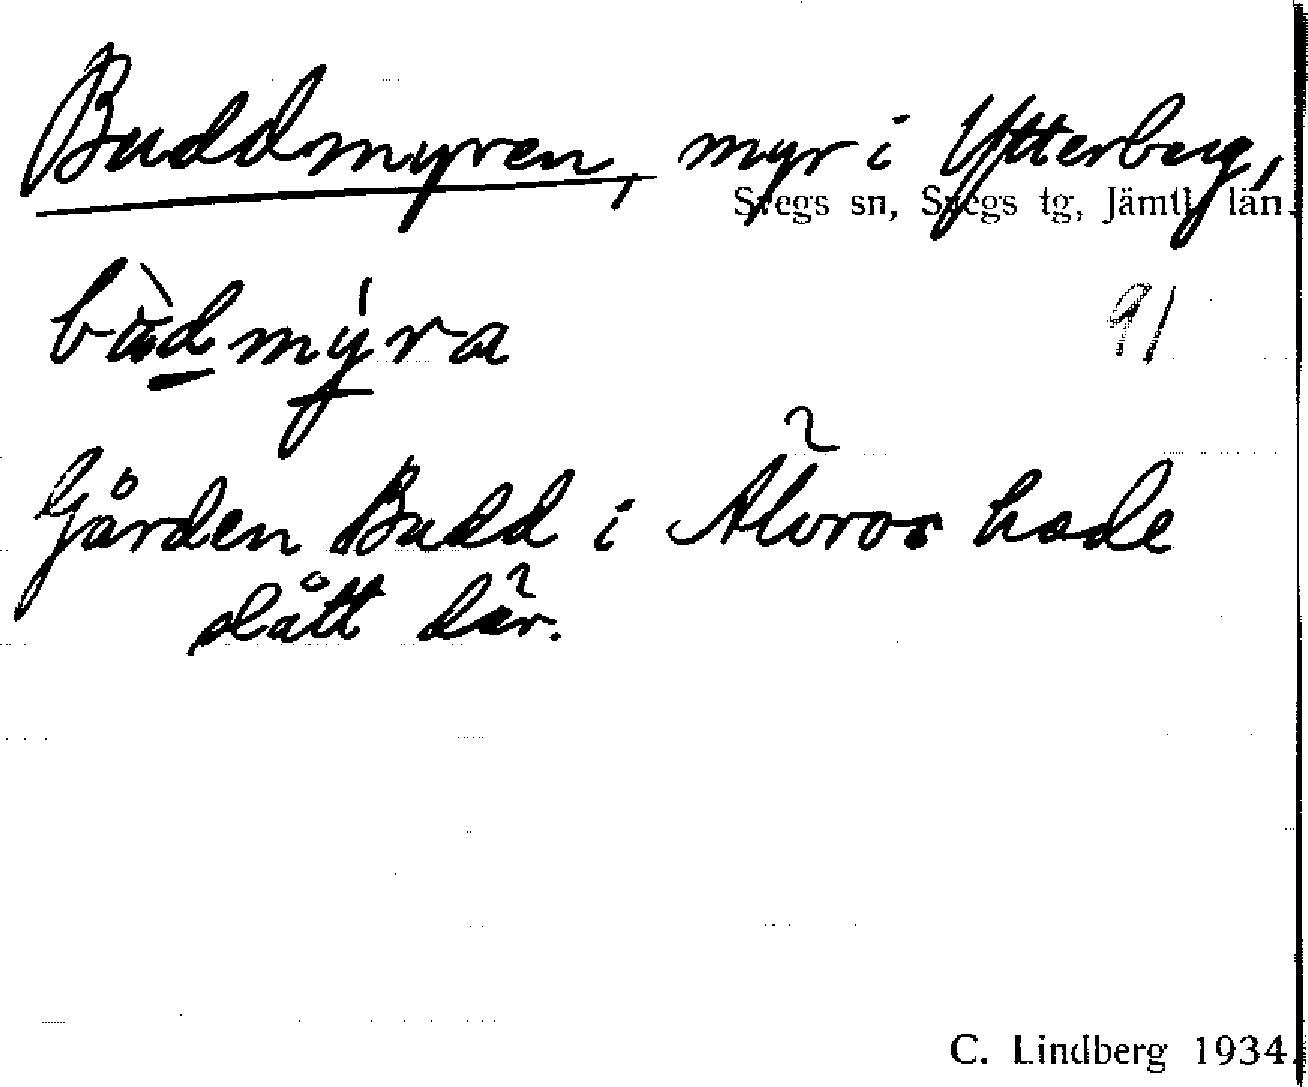 Buddmyren, myr i Ytterberg,
Svegs sn, Svegs tg, Jämtl. län.
bùdmýra
91
Gården Budd i Älvros hade
slått där.
C. Lindberg 1934.